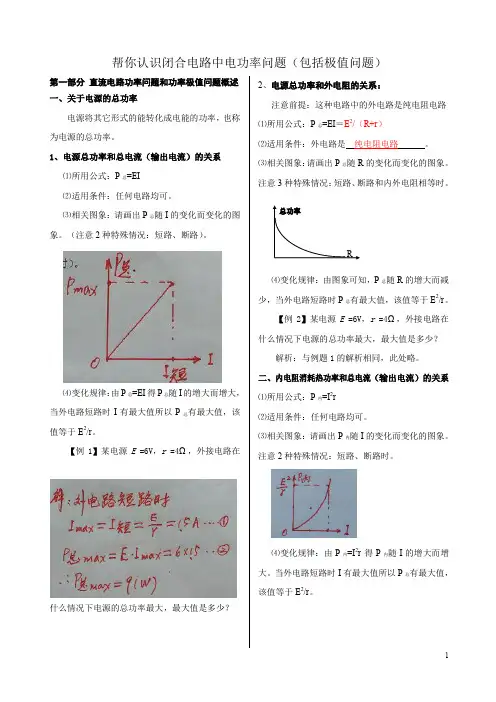 帮你认识闭合电路中电功率问题（包括极值问题）
第一部分 直流电路功率问题和功率极值问题概述
一、关于电源的总功率
电源将其它形式的能转化成电能的功率，也称
为电源的总功率。
1、电源总功率和总电流（输出电流）的关系
⑴所用公式：P总=EI
⑵适用条件：任何电路均可。
⑶相关图象：请画出P总随I的变化而变化的图
象。（注意2种特殊情况：短路、断路）。
P总
Pmax
O
I短
I
⑷变化规律：由P总=EI得P总随I的增大而增大，
当外电路短路时I有最大值所以P总有最大值，该
值等于E²/r。
【例1】某电源 E =6V，r =4Ω，外接电路在
解：外电路短路时
Imax=I短=E/r=1.5A…①
P总max=E·Imax=6×1.5…②
∴P总max=9(W)
什么情况下电源的总功率最大，最大值是多少？
2、电源总功率和外电阻的关系：
注意前提：这种电路中的外电路是纯电阻电路
⑴所用公式：P总=EI＝E²/（R+r）
⑵适用条件：外电路是 纯电阻电路 。
⑶相关图象：请画出P总随R的变化而变化的图象。
注意3种特殊情况：短路、断路和内外电阻相等时。
总功率
R
⑷变化规律：由图象可知，P总随R的增大而减
少，当外电路短路时P总有最大值，该值等于E²/r。
【例2】某电源 E =6V，r =4Ω，外接电路在
什么情况下电源的总功率最大，最大值是多少？
解析：与例题1的解析相同，此处略。
二、内电阻消耗热功率和总电流（输出电流）的关系
⑴所用公式：P内=I²r
⑵适用条件：任何电路均可。
⑶相关图象：请画出P内随I的变化而变化的图象。
注意2种特殊情况：短路、断路时。
E²/r
P内
O
I
⑷变化规律：由P内=I²r得P内随I的增大而增
大。当外电路短路时I有最大值所以P内有最大值，
该值等于E²/r。
1